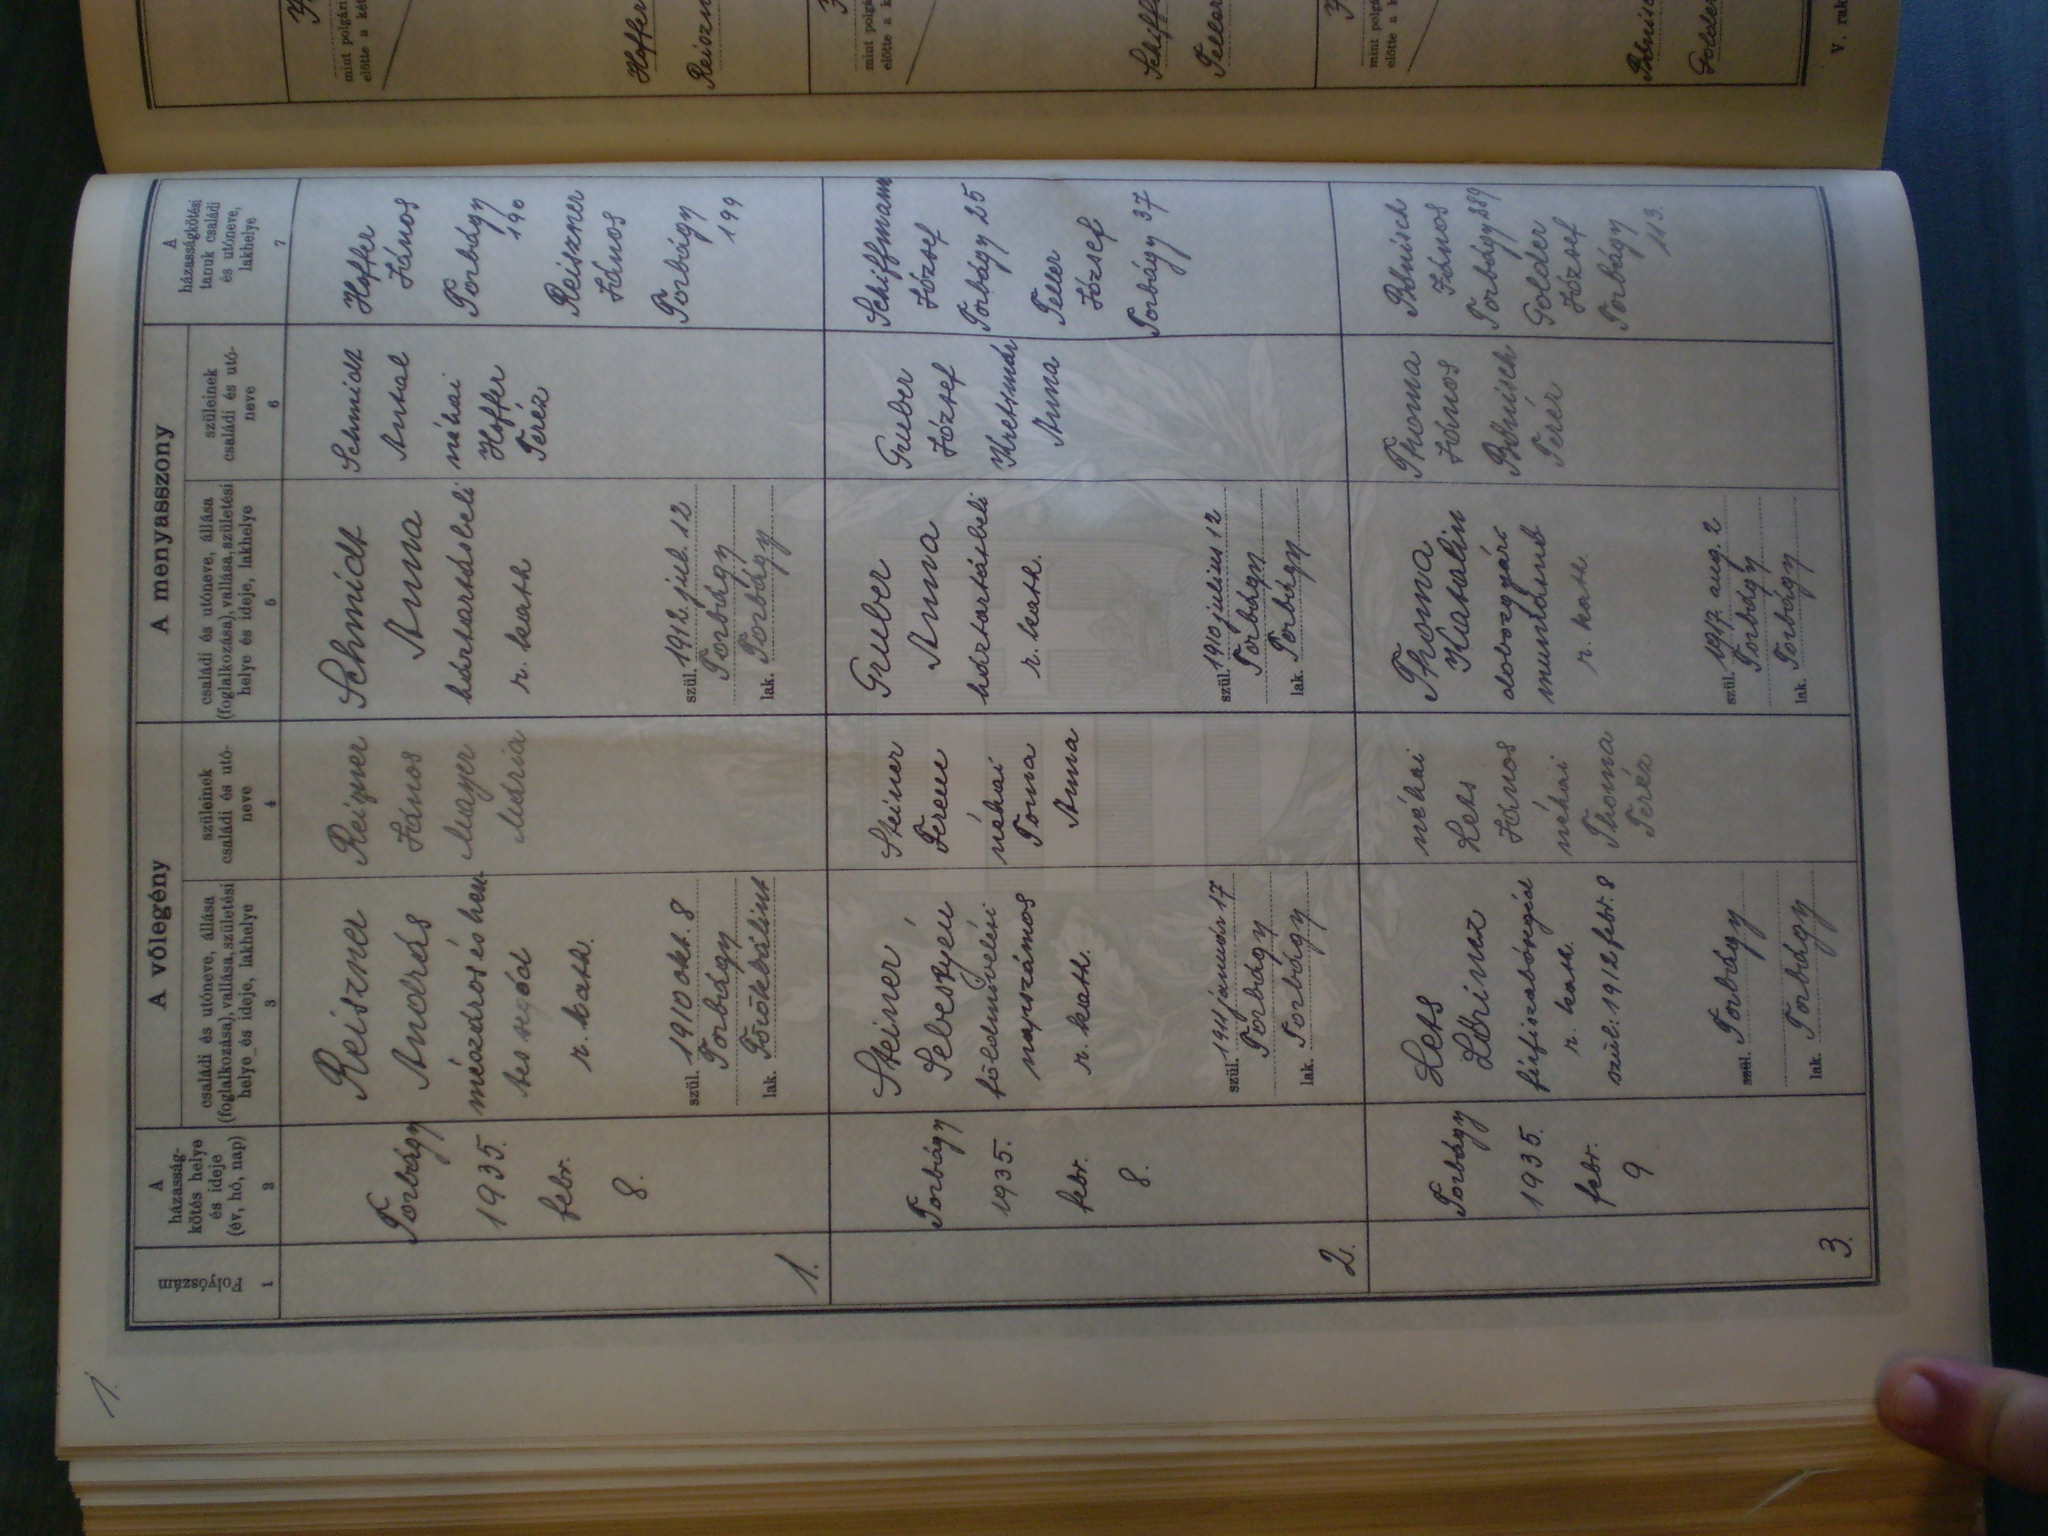 1.
A vőlegény
A menyasszony
Folyószám
1
A
házasság-
kötés helye
és ideje
(év, hó, nap)
2
családi és utóneve, állása
(foglalkozása), vallása, születési
helye és ideje, lakhelye
3
szüleinek
családi és utó-
neve
4
családi és utóneve, állása
(foglalkozása), vallása, születési
helye és ideje, lakhelye
5
szüleinek
családi és utó-
neve
6
A
házasságkötési
tanuk családi
és utóneve,
lakhelye
7
1.
Torbágy
1935.
febr.
8.
Reiszner
András
mészáros és hen-
tes segéd
r. kath.
szül. 1910 okt. 8
Torbágy
lak. Törökbálint
János
Mayer
Mária
Schmidt
Anna
háztartásbeli
r. kath
szül. 1912. jul. 12
Torbágy
lak. Torbágy
Schmidt
Antal
néhai
Hoffer
Teréz
Hoffer
János
Torbágy
190
Reiszner
János
Torbágy
199
2.
Torbágy
1935.
febr.
8.
Steiner
Sebestyén
földmüvelési
napszámos
r. kath.
szül. 1911 január 17
Torbágy
lak. Torbágy
Steiner
Ferenc
néhai
Toma
Anna
Gruber
Anna
háztartásbeli
r. kath.
szül. 1910 julius 12
Torbágy
lak. Torbágy
Gruber
József
Anna
Schiffmann
József
Torbágy 25
Teller
József
Torbágy 37
3.
Torbágy
1935.
febr.
9
Lets
Lőrinc
férfiszabósegéd
r. kath.
szül: 1912 febr. 8
szül. Torbágy
lak. Torbágy
néhai
Lets
János
néhai
Thoma
Teréz
Thoma
Katalin
dobozgyári
munkásnő
r. kath.
szül. 1917. aug. 2
Torbágy
lak. Torbágy
Thoma
János
Teréz
János
Torbágy 289
Golder
József
Torbágy
113.
mint polgári
előtte a
Hoffer
Reiszn
mint polgá
előtte a k
Schiff
Teller
mint polgá
előtte a k
Golder
V. rak